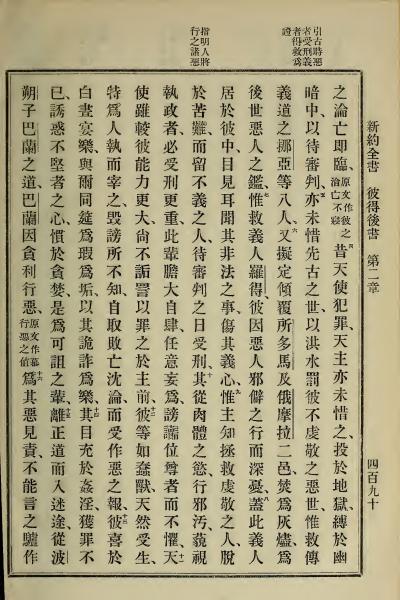 引古時惡
者受刑義
者得救爲
證
指明人將
行之諸惡
新約全書　彼得後書　第二章　四百九十
之淪亡即臨、原文作彼之淪亡不寢四昔天使犯罪、天主亦未惜之、投於地獄、縛於幽
暗中以待審判、五亦未惜先古之世、以洪水罰彼不虔敬之惡世、惟救傳
義道之挪亞等八人、六又擬定傾覆所多馬及俄摩拉二邑、焚爲灰燼、爲
後世惡人之鑑、七惟救義人羅得、彼因惡人邪僻之行而深憂、八蓋此義人
居於彼中、目見耳聞其非法之事、傷其義心、九惟主知拯救虔敬之人脫
於苦難、而留不義之人、待審判之日受刑、十其從肉體之慾、行邪污、藐視
執政者、必受刑更重、此輩膽大自肆、任意妄爲、謗讟位尊者而不懼、十一天
使雖較彼能力更大、尙不詬詈以罪之於主前、十二彼等如蠢獸、天然受生、
特爲人執而宰之、毀謗所不知、自取敗亡沈淪、而受作惡之報、十三彼喜於
白晝宴樂、與爾同筵、爲瑕爲垢、以其詭詐爲樂、十四其目充於姦淫、獲罪不
已、誘惑不堅者之心、慣於貪婪、是爲可詛之輩、十五離正道而入迷途、從波
朔子巴蘭之道、巴蘭因貪利行惡、原文作慕行惡之値十六爲其惡見責、不能言之驢、作